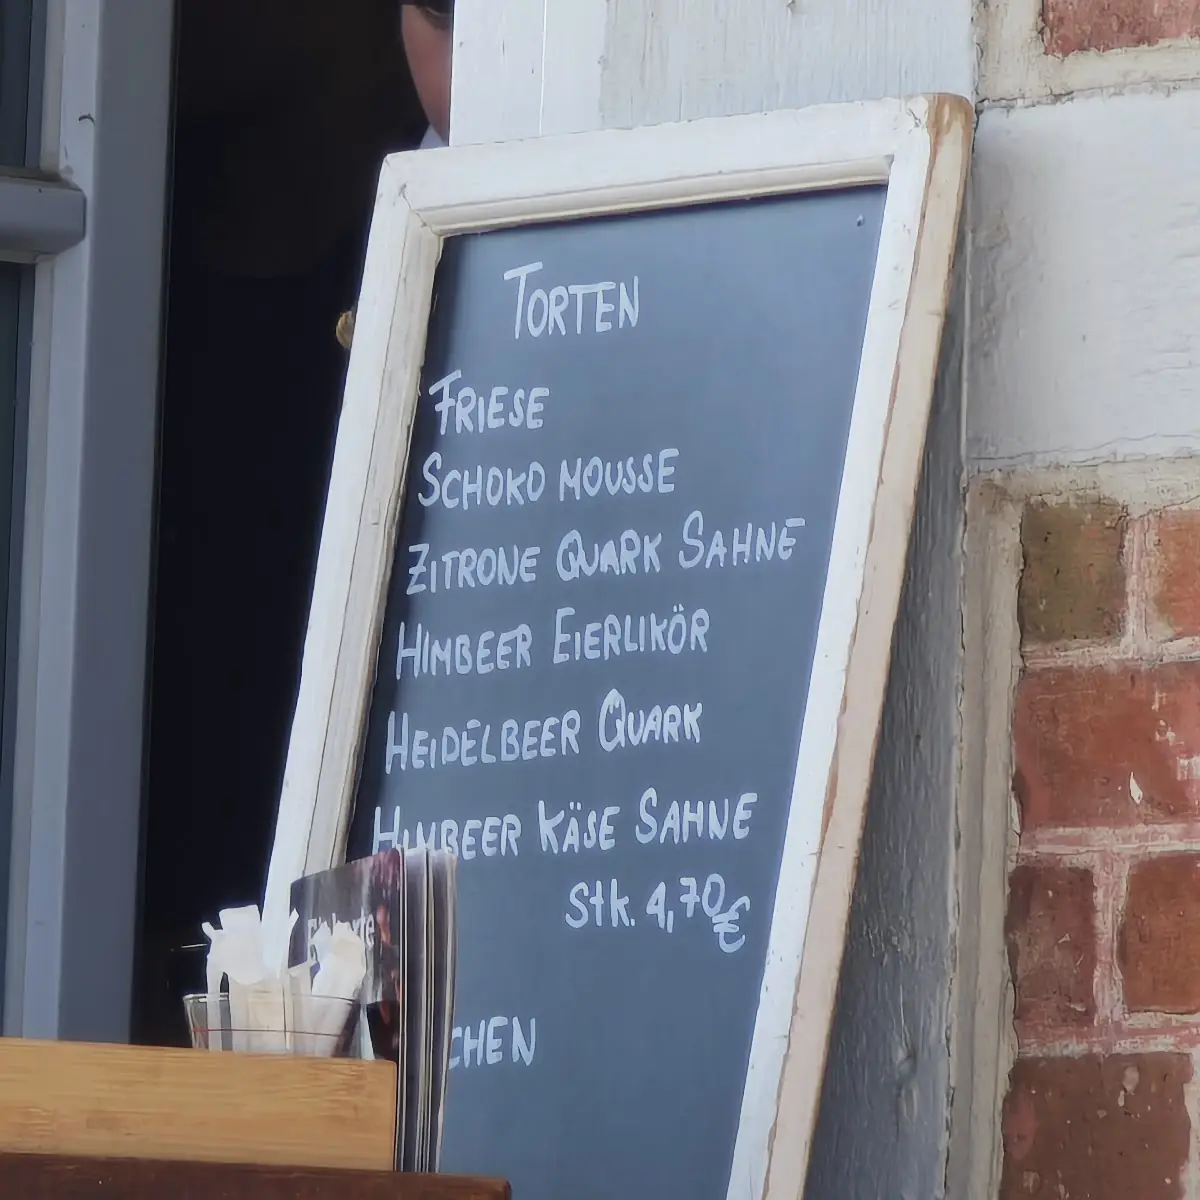 TORTEN
FRIESE
SCHOKO MOUSSE
ZITRONE QUARK SAHNE
HIMBEER EIERLIKÖR
HEIDELBEER QUARK
HIMBEER KÄSE SAHNE
Stk. 4,70€
CHEN